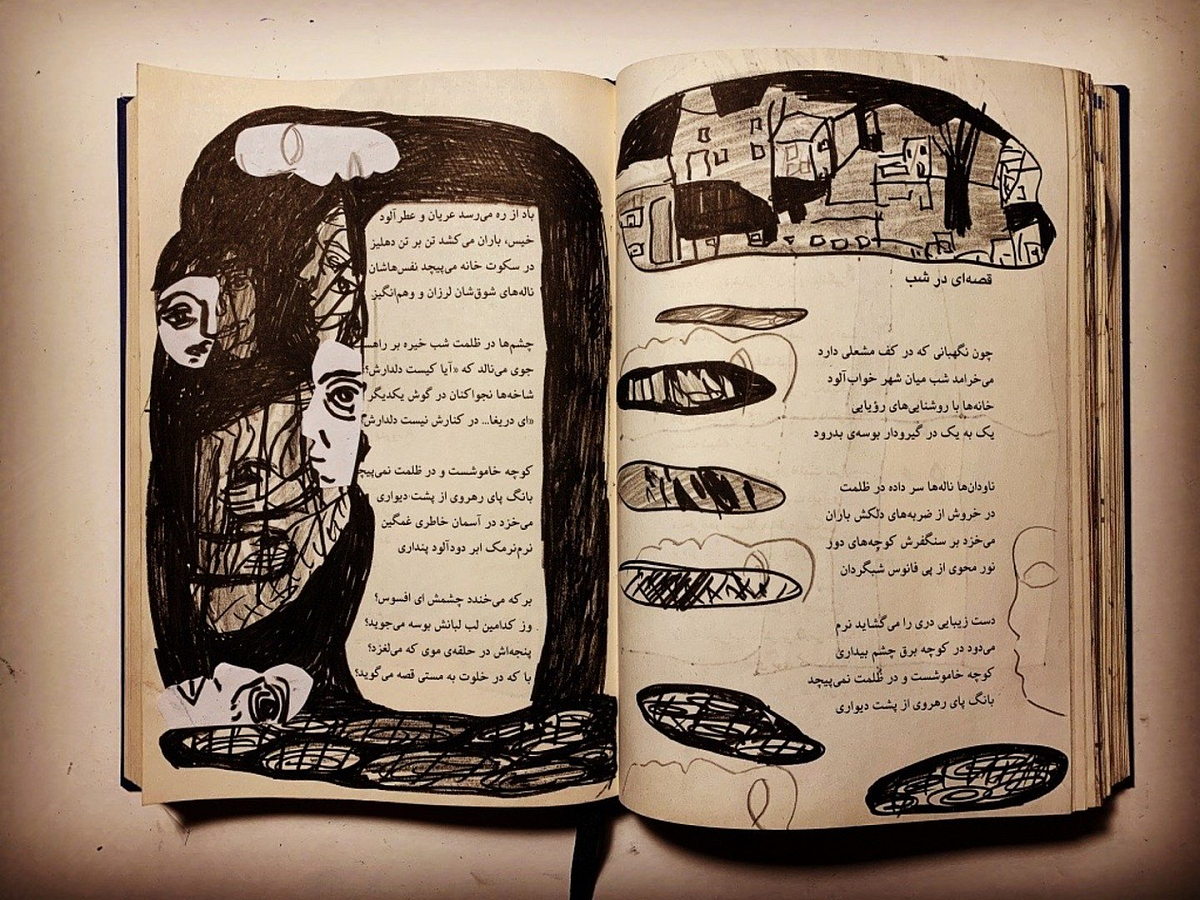 قصه‌ای در شب
چون نگهبانی که در کف مشعلی دارد
می‌خرامد شب میان شهر خواب‌آلود
خانه‌ها با روشنایی‌های رؤیایی
یک به یک در گیرودار بوسه‌ی بدرود
ناودان‌ها ناله‌ها سر داده در ظلمت
در خروش از ضربه‌های دلکش باران
می‌خزد بر سنگفرش کوچه‌های دور
نور محوی از پی فانوس شبگردان
دست زیبایی دری را می‌گشاید نرم
می‌دود در کوچه برق چشم بیداری
کوچه خاموشست و در ظلمت نمی‌پیچد
بانگ پای رهروی از پشت دیواری
باد از ره می‌رسد عریان و عطرآلود
خیس، باران می‌کشد تن بر تن دهلیز
در سکوت خانه می‌پیچد نفس‌هاشان
ناله‌های شوق‌شان لرزان و وهم‌انگیز
چشم‌ها در ظلمت شب خیره بر راهس
جوی می‌نالد که «آیا کیست دلدارش؟
شاخه‌ها نجواکنان در گوش یکدیگر
«ای دریغا... در کنارش نیست دلدارش
کوچه خاموشست و در ظلمت نمی‌پیچد
بانگ پای رهروی از پشت دیواری
می‌خزد در آسمان خاطری غمگین
نرم‌نرمک ابر دودآلود پنداری
بر که می‌خندد چشمش ای افسوس؟
وز کدامین لب لبانش بوسه می‌جوید؟
پنجه‌اش در حلقه‌ی موی که می‌لغزد؟
با که در خلوت به مستی قصه می‌گوید؟